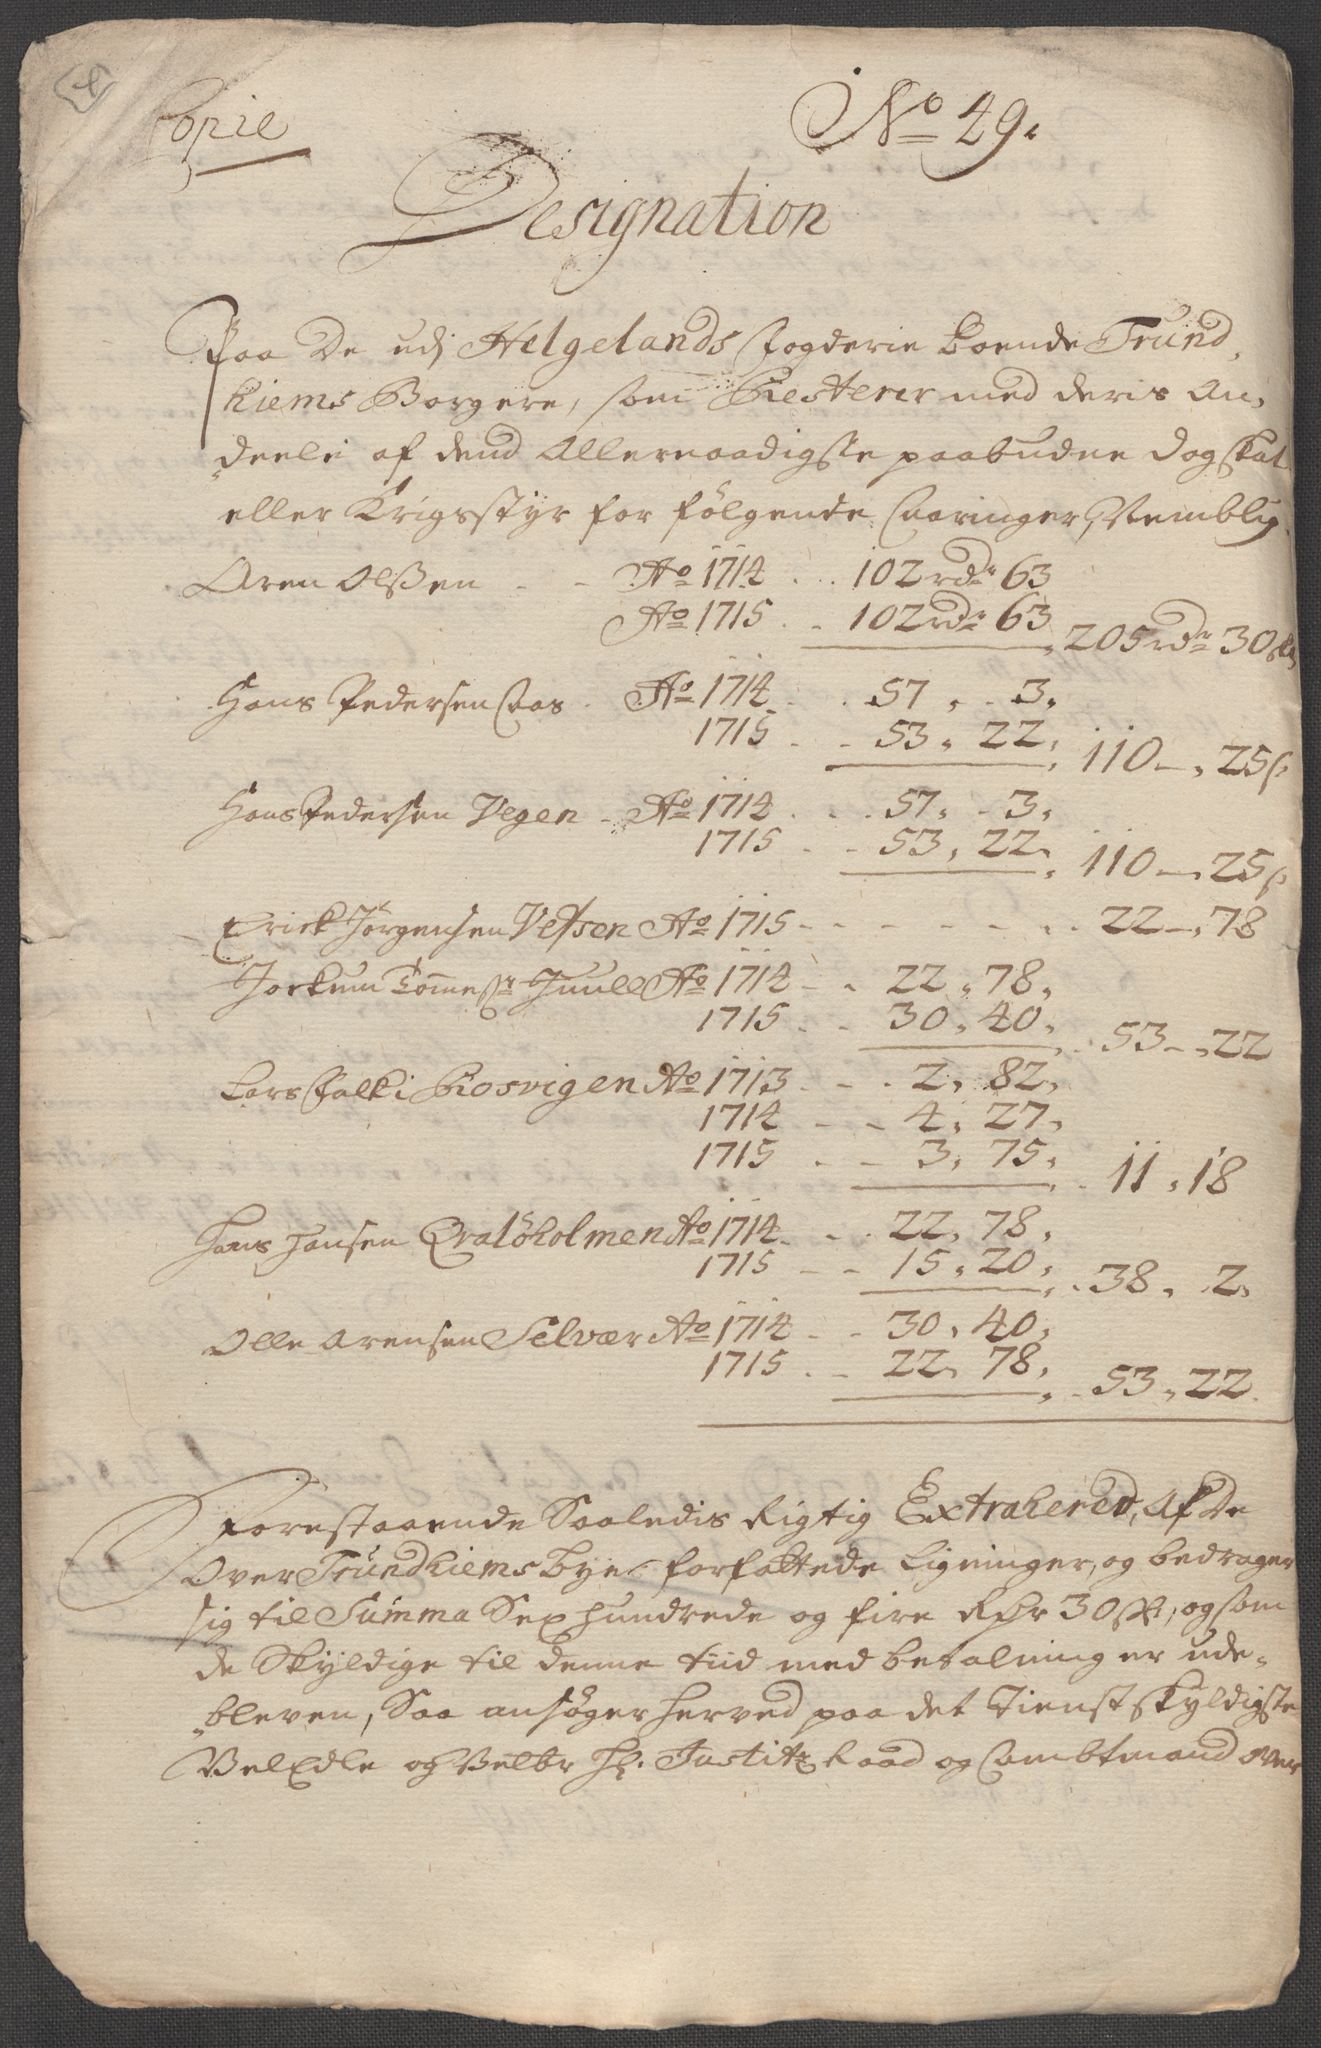 Copie
No 49.
Designation
Paa De udj Helgelands fogderie Boende Trund,
hiems Borgere, som Resterer med deris An,
deele af dend Allernaadigste paabudne Dagskat
eller Krigsstyr for følgende aaringer, Nemblig.
Aren Olsen - - Ao 1714 . . 102 rdr 63
Ao 1715 . - 102 rdr 63
205 rdr 30 sk
Hans Pedersen Aas . Ao 1714 . . 57 , . 3,
1715 . - 53, 22,
110 -, 25 s
Hans Pedersen Vegen - Ao 1714 . . . 57, . 3,
1715 . - 53, 22,
110 -, 25 s
Erick Jørgensen Vefsen Ao 1715 - - - - - . . 22 -, 78
Jockum Tommess: Juull Ao 1714 - . 22, 78,
1715 . - 30, 40,
53 -, 22
Lars Falk i Rosvigen Ao 1713 . - . 2, 82,
1714 - - 4, 27,
1715 . - 3, 75,
11, 18
Hans Hansen Qvaløholmen Ao 1714 . . 22, 78,
1715 - - 15, 20,
38, 2,
Olle Arensen Selvær Ao 1714 . - 30, 40,
1715 . - 22, 78,
53, 22
Forestaaende Saaledis Rigtig Extrahered, Af De
Over Trundhiems bye forfattede Ligninger, og bedrager
sig til Summa Sex hundrede og fire Rdr 30 sk, og som
de Skyldige til denne tiid med betalning er ude,
bleven, Saa ansøger herved paa det Tienstskyldigste
VelEdle og Velbr Hr. Justitz Raad og Ambtmand over